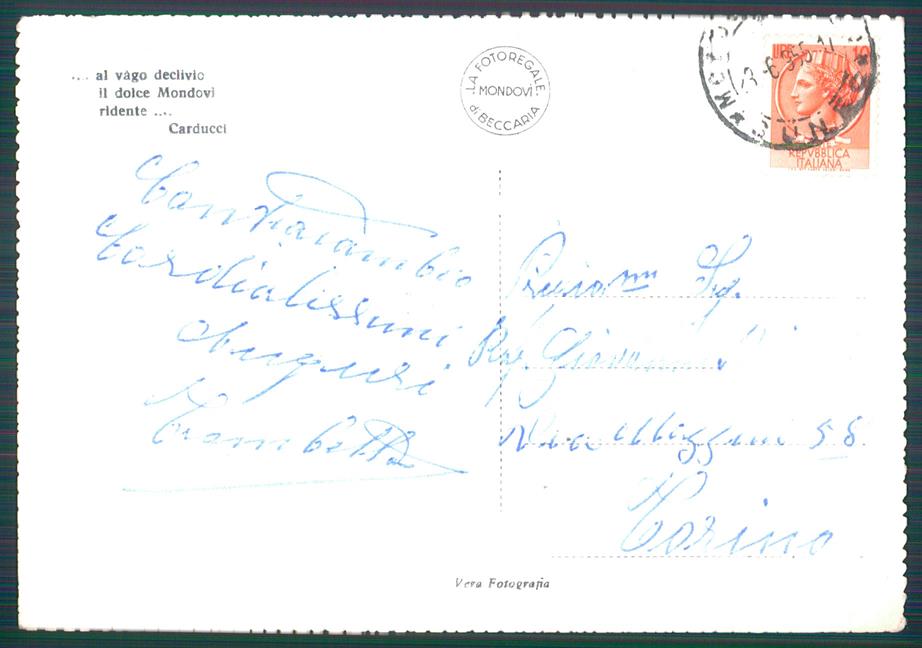 .... al vàgo declivio
il dolce Mondovì
ridente ....
Carducci
LA FOTOREGALE
MONDOVÌ
di BECCARIA
LIRE 10
REPVBBLICA
ITALIANA
Contraccambio
Cordialissimi
Auguri
Trombetta
Sig.
Rag. Giovanni
Via Mazzini 58
Torino
Vera Fotografia